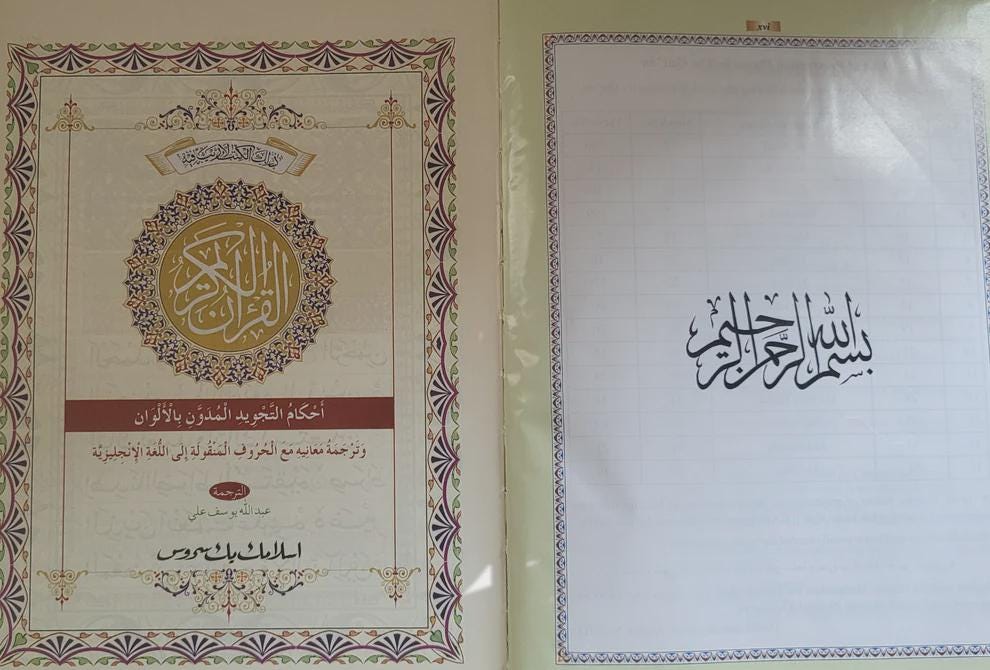 ذلك الكتب لا ريب فيه
القرآن الكريم
أَحْكَامُ التَّجْوِيدِ الْمُدَوَّنِ بِالْأَلْوَان
وَتَرْجَمَةُ مَعَانِيهِ مَعَ الْحُرُوفِ الْمَنْقُولَةِ إِلَى اللُّغَةِ الْإِنْجِلِيزِيَّة
الترجمة
عبد الله يوسف علي
اسلامک بک سروس
xvi
بسم الله الرحمن الرحيم